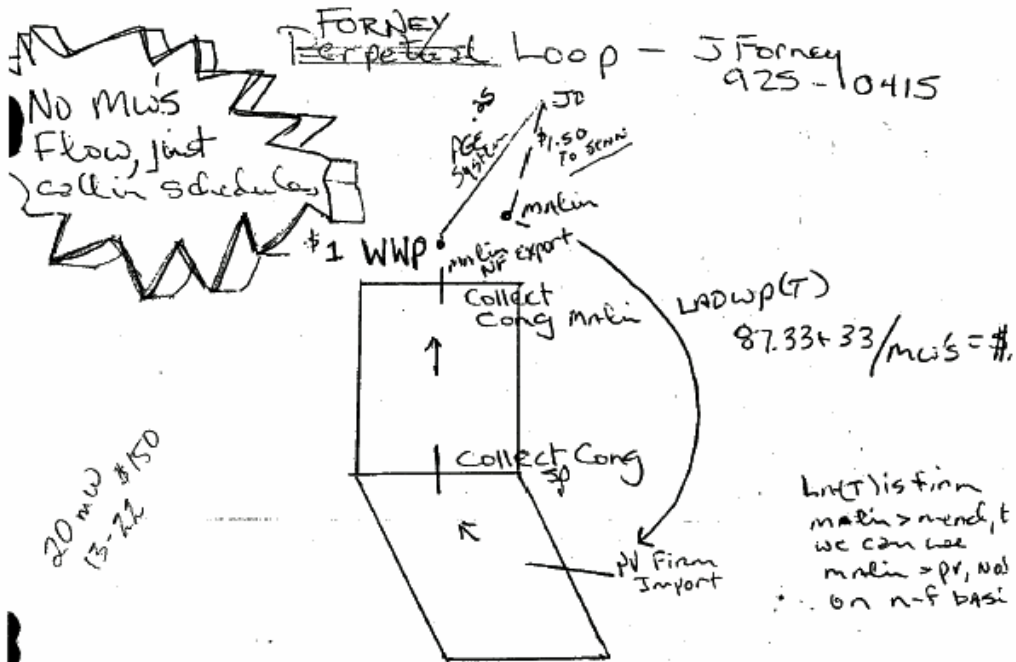 FORNEY
Perpetual Loop - J Forney
925-10415
No MW's
Flow, just
collin schedules
PGE
System
JD
$1.50
To
malin
$1 WWP
malin
NF Export
Collect
Cong Malin
LADWP(T)
87.33+33/mw's = $
Collect Cong
20 mw $150
13-22
PV Firm
Import
LA(T) is firm
malin > mend,
we can use
malin > pv,
on n-f basi